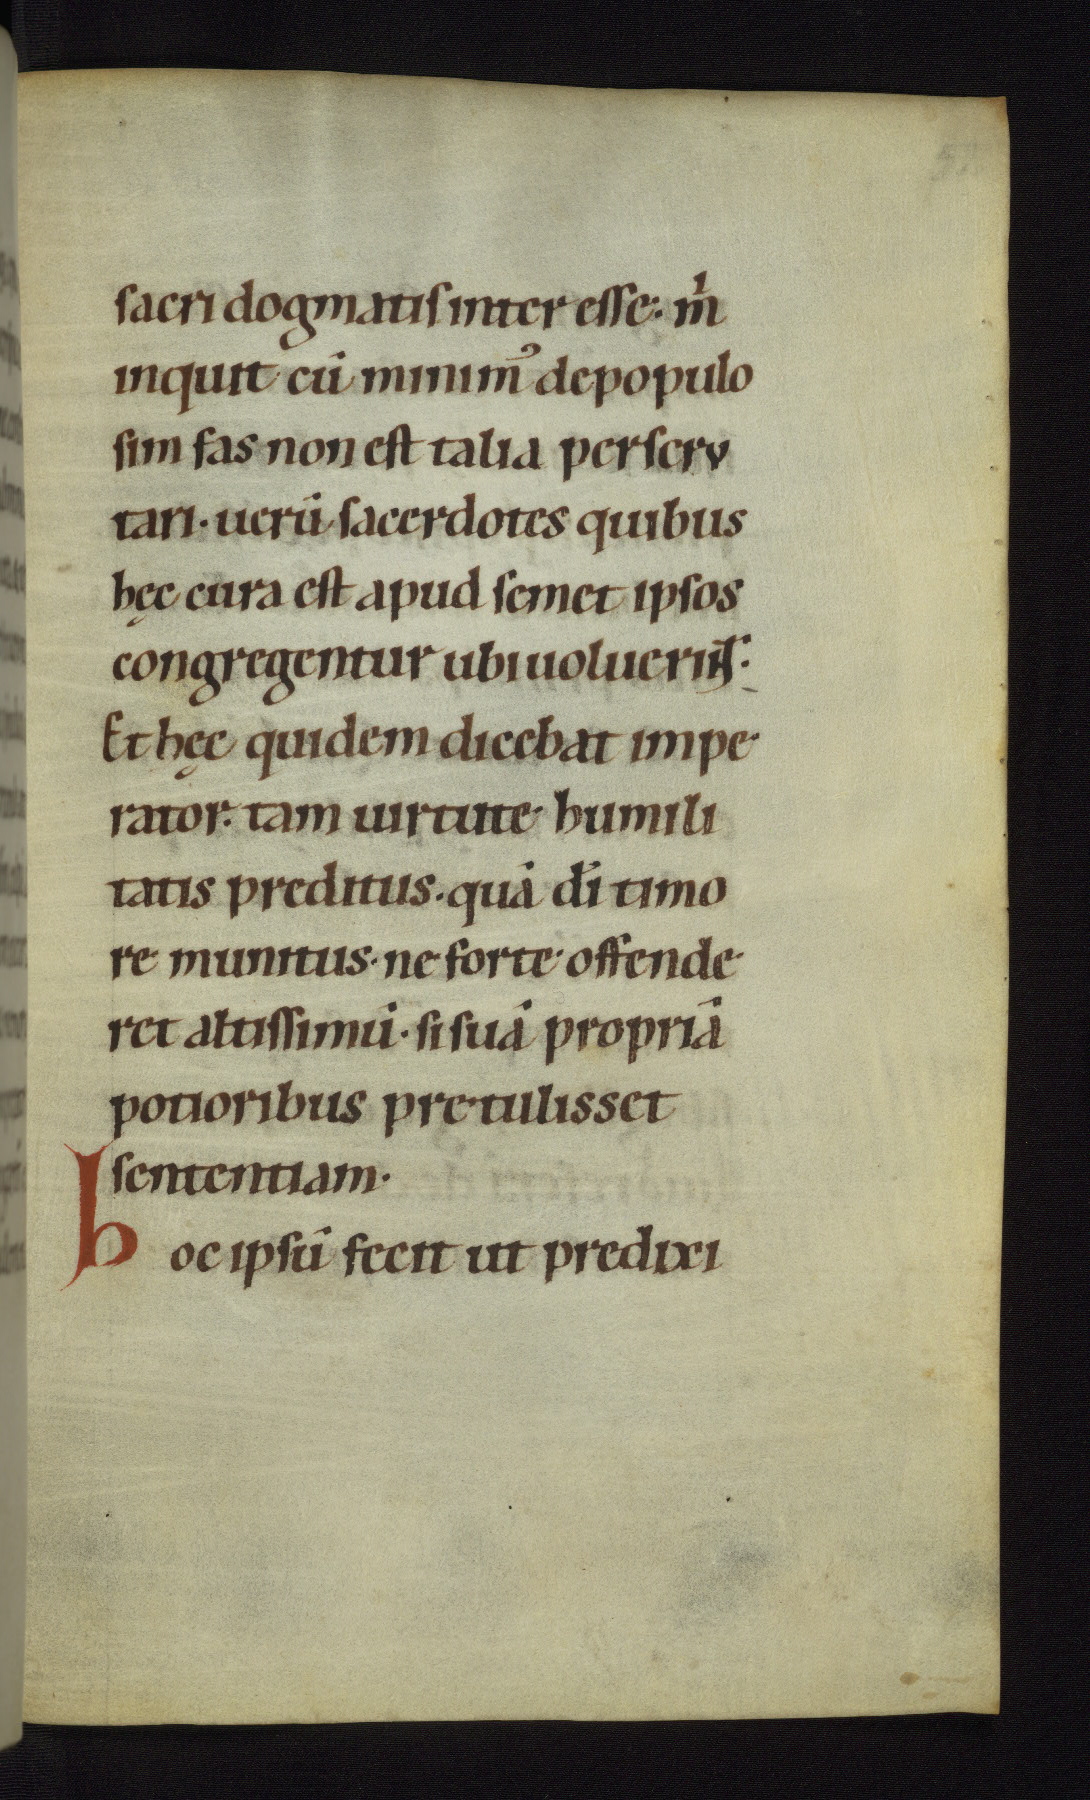 sacri dogmatis inter esse. m̊
inquit cū minim᾿ de populo
sim fas non est talia perscru
tari. uerū sacerdotes quibus
hęc cura est apud semet ipsos
congregentur ubi uoluerint.
Et hęc quidem dicebat impe
rator. tam uirtute humili
tatis preditus. quā dī timo
re munitus. ne forte offende
ret altissimū. si suā propriā
potioribus pretulisset
sententiam.
hoc ipsū fecit ut predixi